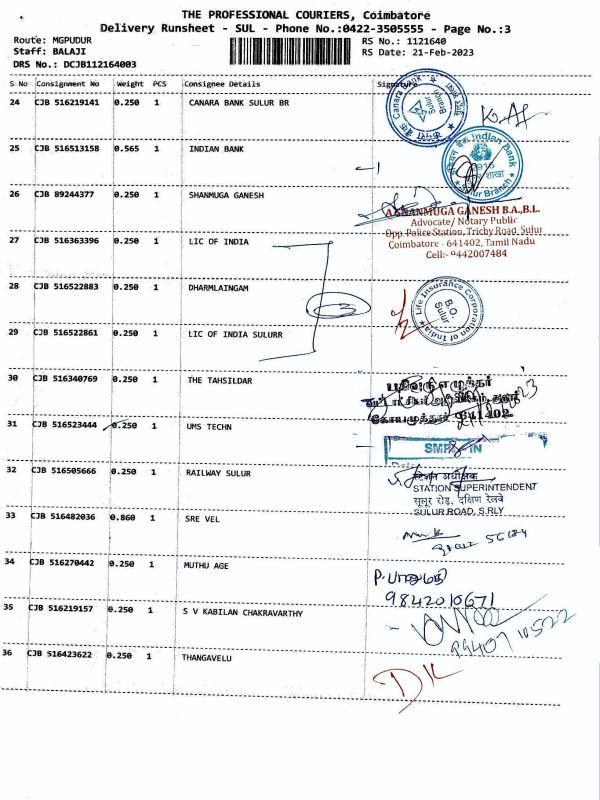 THE PROFESSIONAL COURIERS, Coimbatore
Delivery Runsheet - SUL - Phone No.:0422-3505555 - Page No.:3
Route: MGPUDUR RS No.: 1121640
Staff: BALAJI RS Date: 21-Feb-2023
DRS No.: DCJB112164003
S No Consignment No Weight PCS Consignee Details Signature
24 CJB 516219141 0.250 1 CANARA BANK SULUR BR
Canara Bank Sulur Branch
25 CJB 516513158 0.565 1 INDIAN BANK
Indian Bank Sulur Branch
26 CJB 89244377 0.250 1 SHANMUGA GANESH
A.SHANMUGA GANESH B.A.,B.L.
Advocate/ Notary Public
Opp. Police Station, Trichy Road, Sulur
Coimbatore - 641402, Tamil Nadu
Cell:- 9442007484
27 CJB 516363396 0.250 1 LIC OF INDIA
28 CJB 516522883 0.250 1 DHARMLAINGAM
3
Life Insurance Corporation of India
B.O. Sulur
29 CJB 516522861 0.250 1 LIC OF INDIA SULURR
30 CJB 516340769 0.250 1 THE TAHSILDAR
31 CJB 516523444 0.250 1 UMS TECHN
32 CJB 516505666 0.250 1 RAILWAY SULUR
स्टेशन अधीक्षक
STATION SUPERINTENDENT
सूलूर रोड, दक्षिण रेलवे
SULUR ROAD, S.RLY
33 CJB 516482036 0.860 1 SRE VEL
34 CJB 516270442 0.250 1 MUTHU AGE
P. பானுமதி
9842010671
35 CJB 516219157 0.250 1 S V KABILAN CHAKRAVARTHY
36 CJB 516423622 0.250 1 THANGAVELU